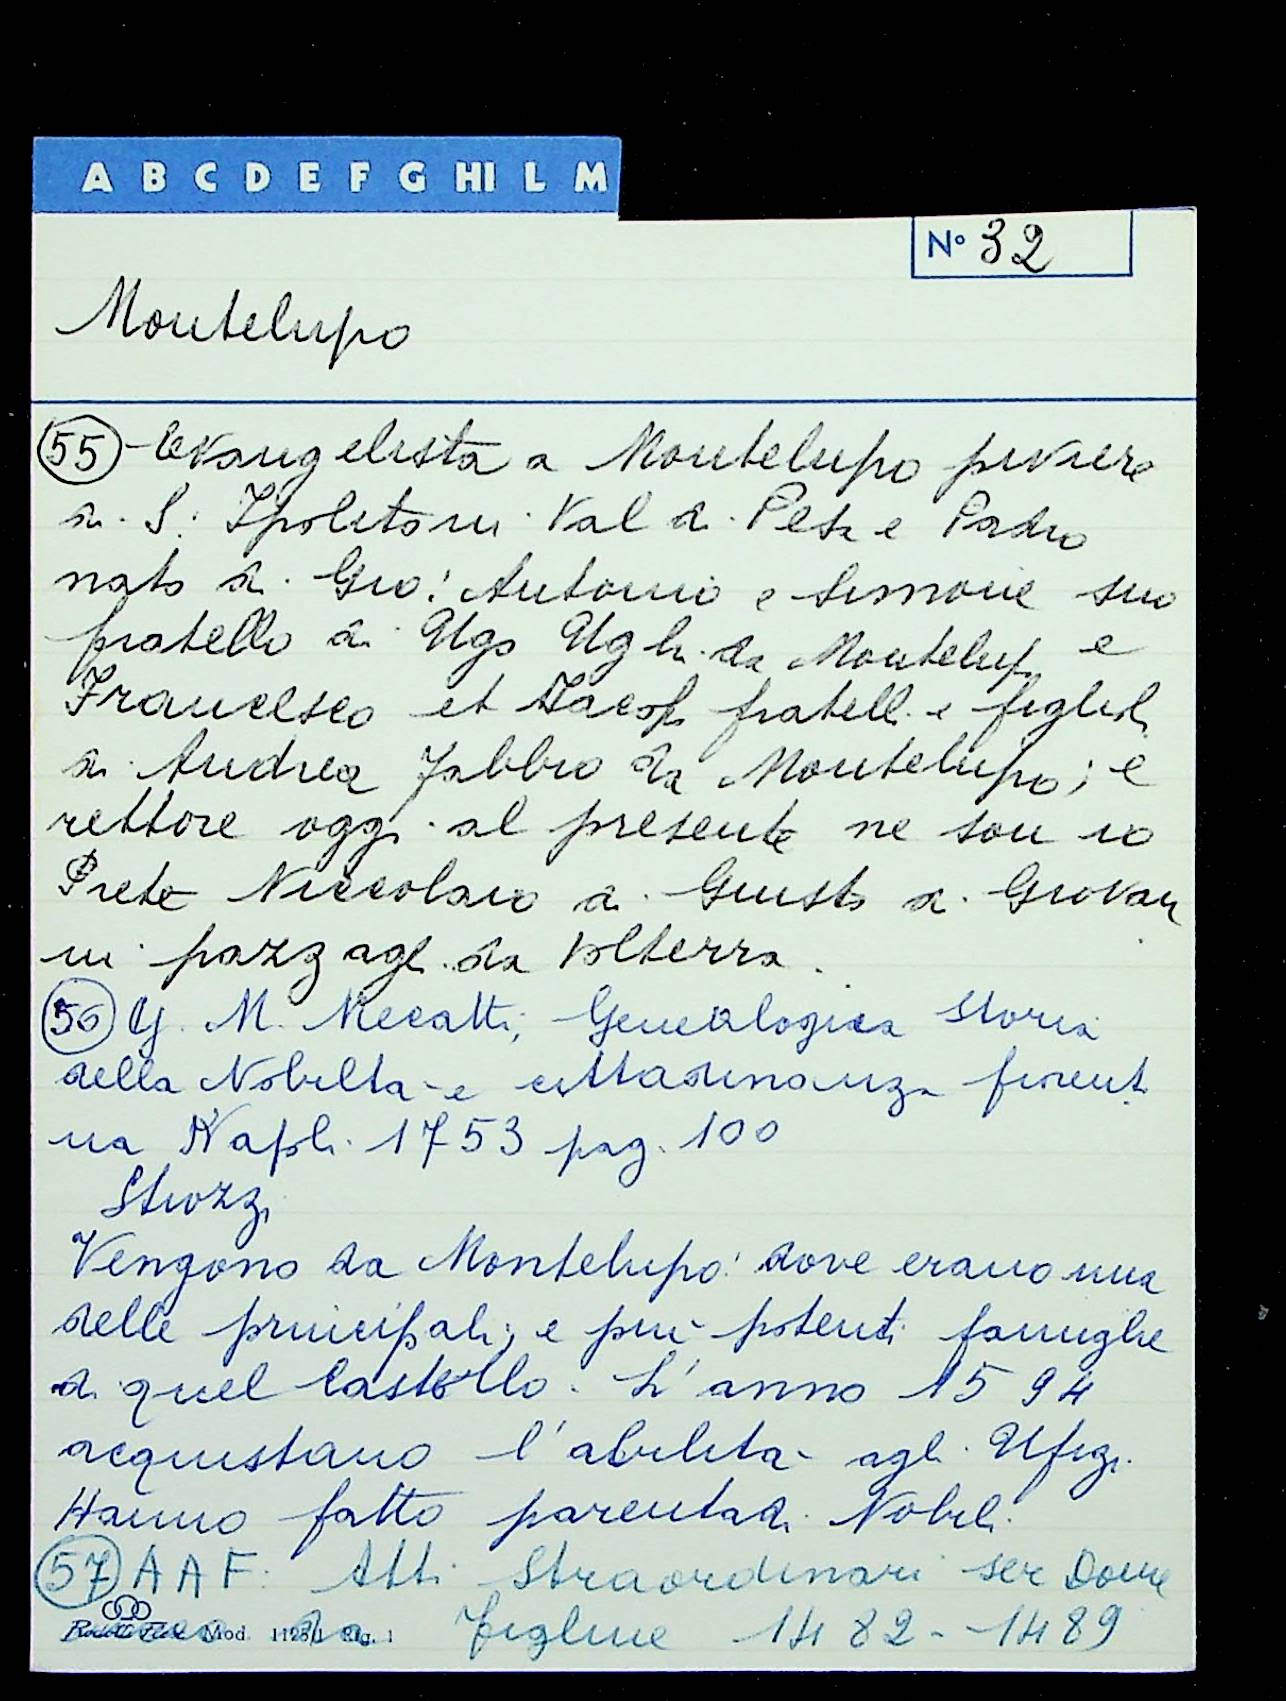 A B C D E F G HI L M
N° 32
Montelupo
55 - Evangelista a Montelupo piviere
di S: Ipolito in Val di Pesa e Padro
nato di Gio: Antonio e Simone suo
fratello di Ugo Ughi da Montelupo e
Francesco et Jacopo fratelli e figlioli
di Andrea Fabbro da Montelupo; e
rettore oggi al presente ne son io
Prete Niccolaio di Giusto di Giovan
ni pazzagli da Volterra.
56 G. M. Mecatti, Genealogica Storia
della Nobilta e cittadinanza fiorenti
na Napoli 1753 pag. 100
Strozzi
Vengono da Montelupo: dove erano una
delle principali, e più potenti famiglie
di quel Castello. L'anno 1594
acquistano l'abilità agli Ufizi.
Hanno fatto parentadi Nobili.
57 A A F: Atti Straordinari ser Dome
nico da Figline 1482-1489
Mod. 1126/1 Rig. 1